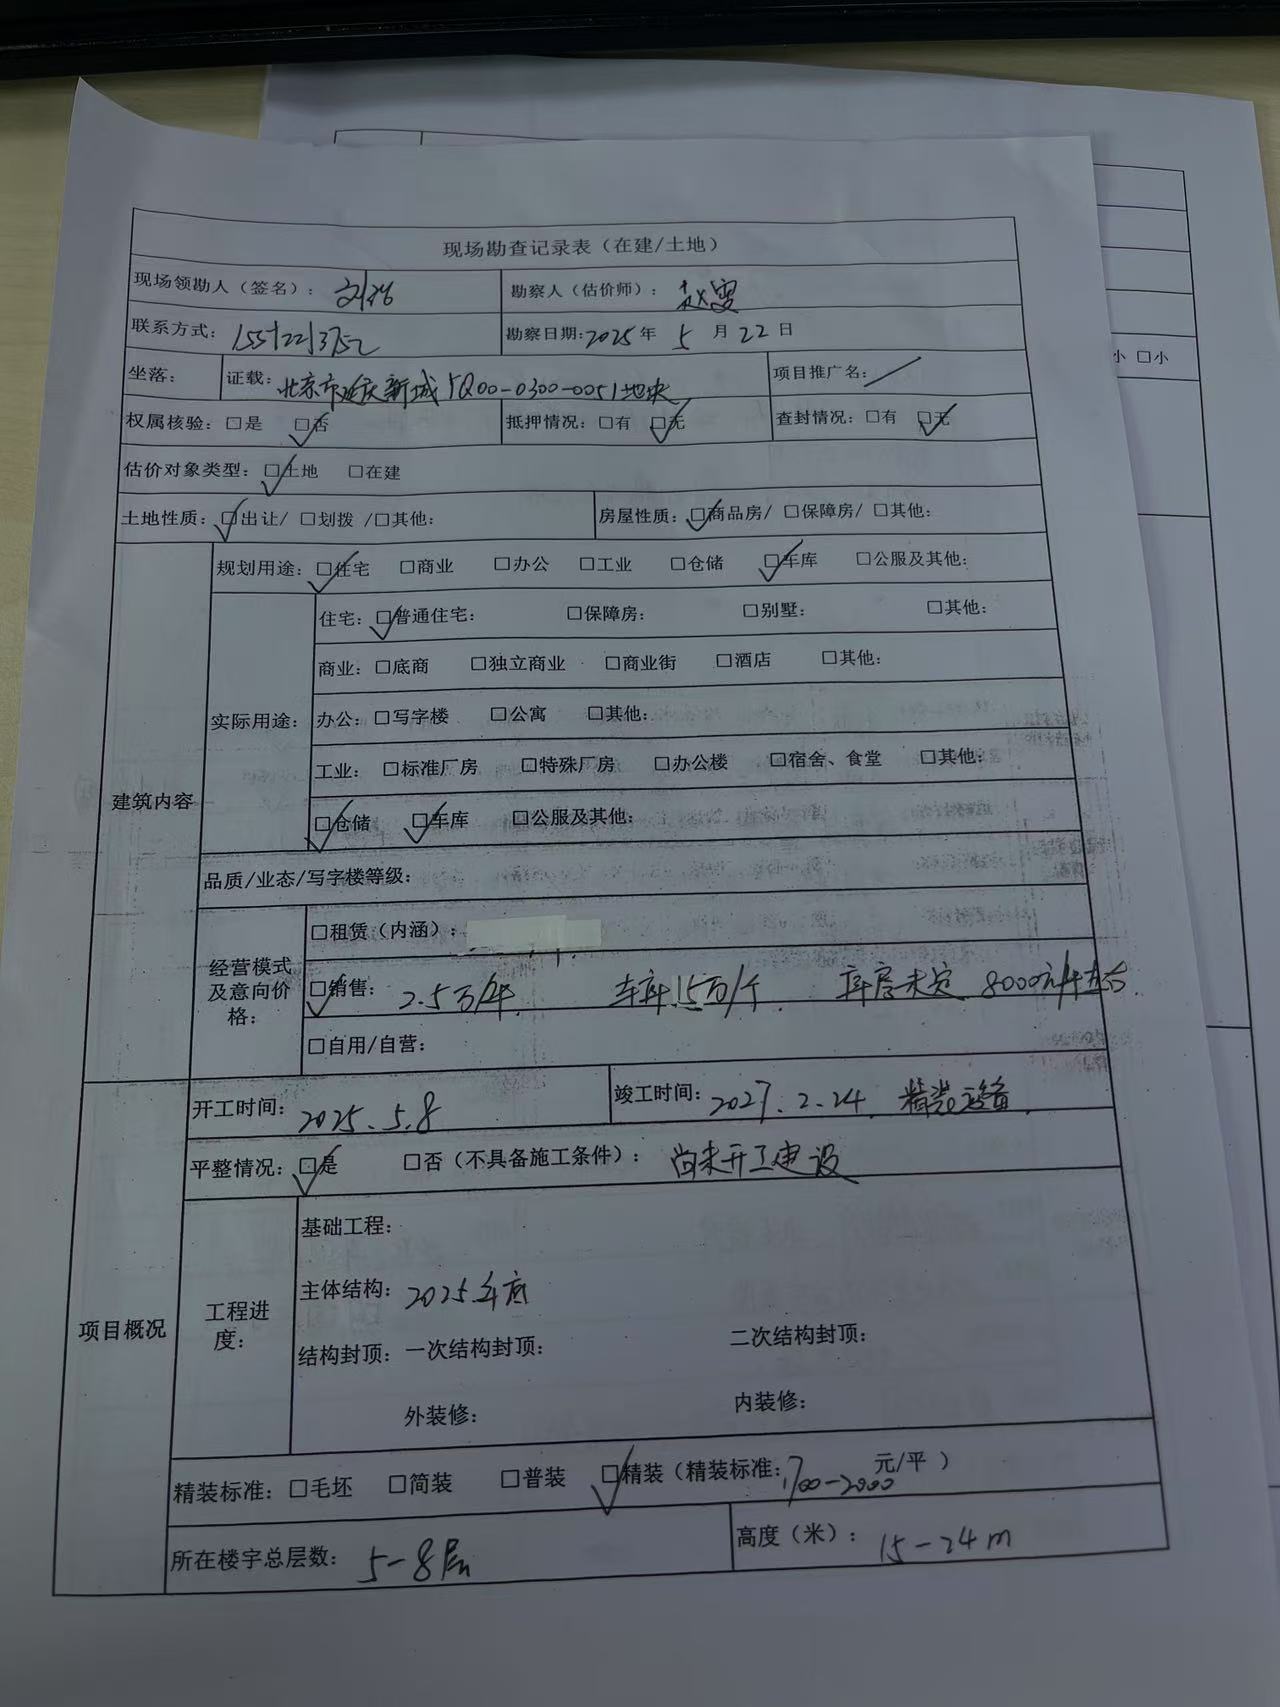 现场勘查记录表（在建/土地）
现场领勘人（签名）： 勘察人（估价师）：
联系方式： 勘察日期:2025年 5 月 22 日
坐落： 证载: 北京市延庆新城YQ00-0300-0051地块 项目推广名:
权属核验：☐是 ☑否 抵押情况：☐有 ☑无 查封情况：☐有 ☑无
估价对象类型：☑土地 ☐在建
土地性质：☑出让/ ☐划拨 /☐其他: 房屋性质：☑商品房/ ☐保障房/ ☐其他:
建筑内容
规划用途：☑住宅 ☐商业 ☐办公 ☐工业 ☐仓储 ☑车库 ☐公服及其他:
实际用途：
住宅：☑普通住宅: ☐保障房: ☐别墅: ☐其他:
商业：☐底商 ☐独立商业 ☐商业街 ☐酒店 ☐其他:
办公：☐写字楼 ☐公寓 ☐其他:
工业： ☐标准厂房 ☐特殊厂房 ☐办公楼 ☐宿舍、食堂 ☐其他:
☑仓储 ☑车库 ☐公服及其他:
品质/业态/写字楼等级:
经营模式及意向价格：
☐租赁（内涵）:
☑销售: 2.5万/平 车库15万/个 库房未定 8000元/平左右
☐自用/自营:
项目概况
开工时间: 2025.5.8 竣工时间: 2027.2.24. 精装设备
平整情况：☑是 ☐否（不具备施工条件）: 尚未开工建设
工程进度：
基础工程:
主体结构: 2025年底
结构封顶: 一次结构封顶: 二次结构封顶:
外装修: 内装修:
精装标准：☐毛坯 ☐简装 ☐普装 ☑精装（精装标准: 1700-2000 元/平 ）
所在楼宇总层数: 5-8层 高度（米）: 15-24m
小 ☐小